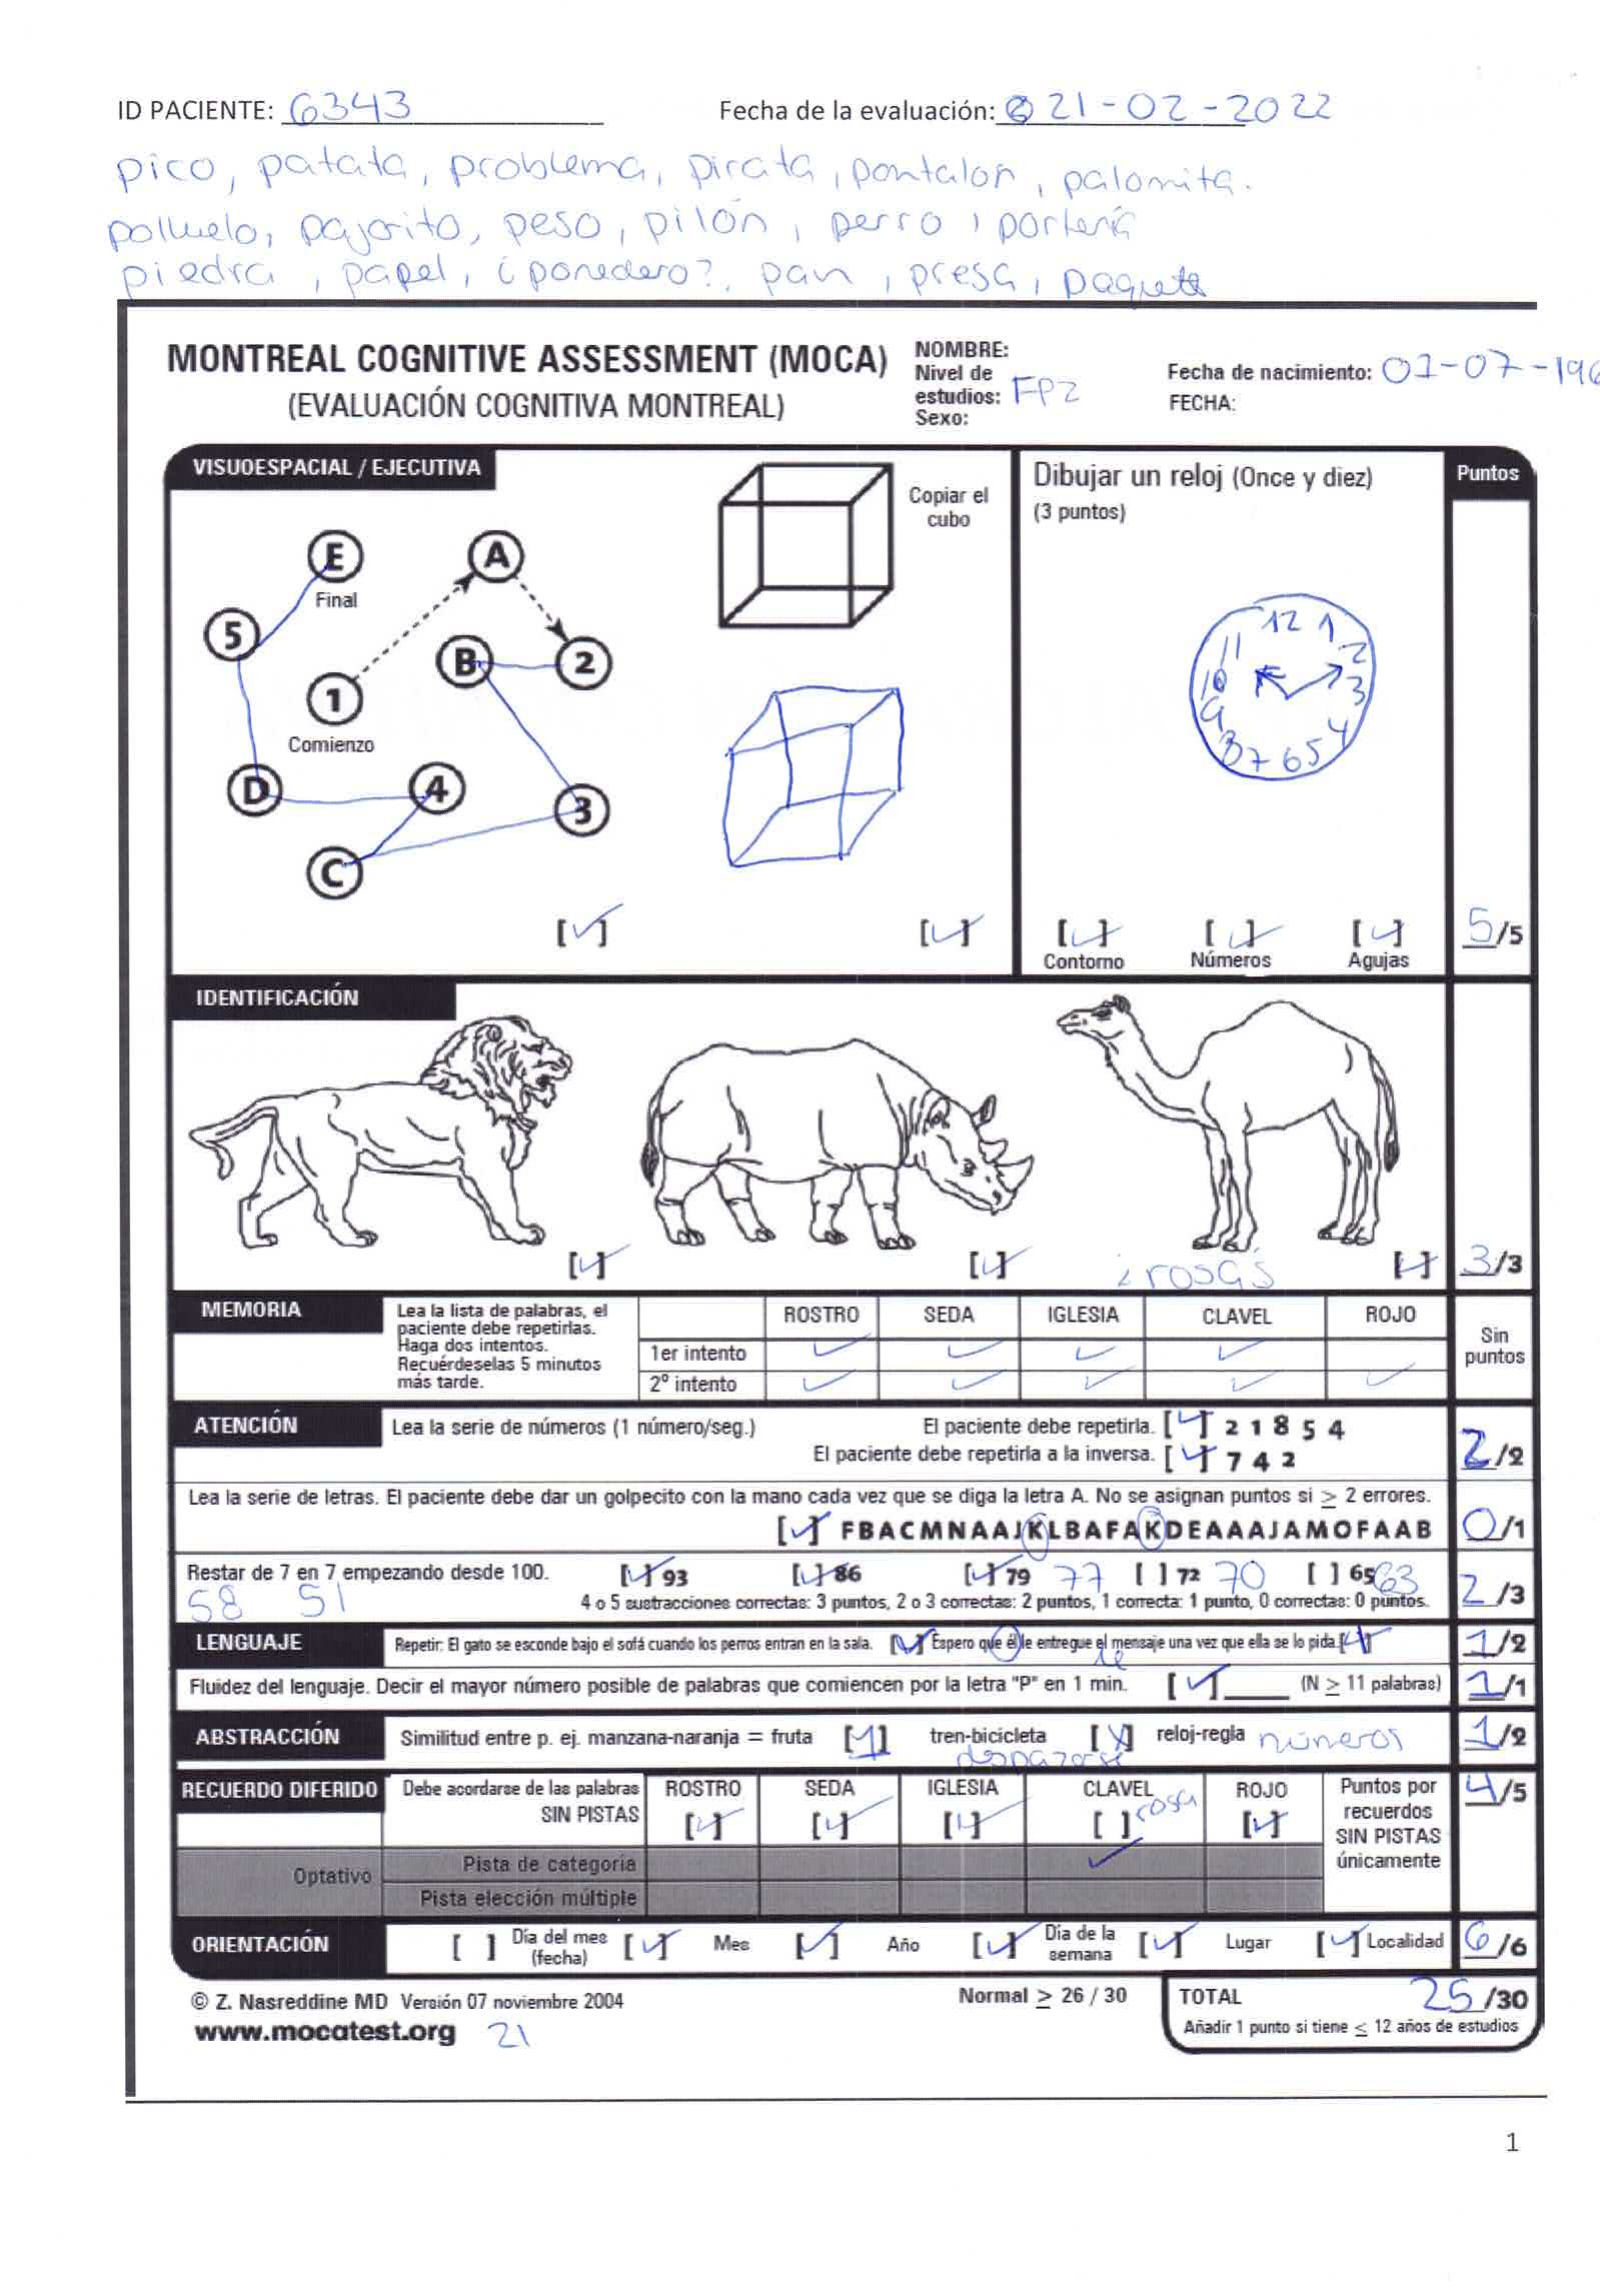 ID PACIENTE: 6343 Fecha de la evaluación: 21-02-2022
pico, patata, problema, pirata, pantalon, palomita.
polluelo, pajarito, peso, pilón, perro, portería
piedra, papel, ¿ponedero?, pan, presa, paquete
MONTREAL COGNITIVE ASSESSMENT (MOCA)
(EVALUACIÓN COGNITIVA MONTREAL)
NOMBRE:
Nivel de
estudios: FP2
Sexo:
Fecha de nacimiento: 01-07-196
FECHA:
VISUOESPACIAL / EJECUTIVA
Copiar el
cubo
Dibujar un reloj (Once y diez)
(3 puntos)
Puntos
E
Final
A
5
B
2
1
Comienzo
D
4
3
C
12 1 2 3 4 5 6 7 8 9 10 11
[✓] [✓] [✓] [✓] [✓] 5/5
Contorno Números Agujas
IDENTIFICACIÓN
[✓] [✓] ¿rosas [✓] 3/3
MEMORIA
Lea la lista de palabras, el
paciente debe repetirlas.
Haga dos intentos.
Recuérdeselas 5 minutos
más tarde.
ROSTRO SEDA IGLESIA CLAVEL ROJO
1er intento ✓ ✓ ✓ ✓
2º intento ✓ ✓ ✓ ✓ ✓
Sin
puntos
ATENCIÓN Lea la serie de números (1 número/seg.) El paciente debe repetirla. [✓] 2 1 8 5 4
El paciente debe repetirla a la inversa. [✓] 7 4 2 2/2
Lea la serie de letras. El paciente debe dar un golpecito con la mano cada vez que se diga la letra A. No se asignan puntos si ≥ 2 errores.
[✓] FBACMNAAJKLBAFAKDEAAAJAMOFAAB 0/1
Restar de 7 en 7 empezando desde 100. [✓] 93 [✓] 86 [✓] 79 77 [ ] 72 70 [ ] 65 63
58 51 4 o 5 sustracciones correctas: 3 puntos, 2 o 3 correctas: 2 puntos, 1 correcta: 1 punto, 0 correctas: 0 puntos. 2/3
LENGUAJE Repetir: El gato se esconde bajo el sofá cuando los perros entran en la sala. [✓] Espero que él le entregue el mensaje una vez que ella se lo pida. 1/2
le
Fluidez del lenguaje. Decir el mayor número posible de palabras que comiencen por la letra "P" en 1 min. [✓] (N ≥ 11 palabras) 1/1
ABSTRACCIÓN Similitud entre p. ej. manzana-naranja = fruta [1] tren-bicicleta [X] reloj-regla números 1/2
RECUERDO DIFERIDO
Debe acordarse de las palabras
SIN PISTAS
ROSTRO SEDA IGLESIA CLAVEL ROJO
[✓] [✓] [✓] [ ] rosa [✓]
Puntos por
recuerdos
SIN PISTAS
únicamente
4/5
Optativo
Pista de categoría ✓
Pista elección múltiple
ORIENTACIÓN [ ] Día del mes (fecha) [✓] Mes [✓] Año [✓] Día de la semana [✓] Lugar [✓] Localidad 6/6
© Z. Nasreddine MD Versión 07 noviembre 2004
Normal ≥ 26 / 30
TOTAL 25/30
www.mocatest.org 21
Añadir 1 punto si tiene ≤ 12 años de estudios
1